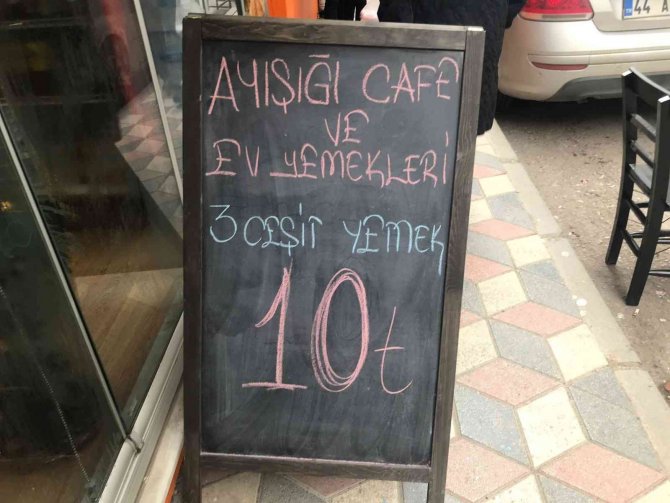 AYIŞIĞI CAFE
VE
EV YEMEKLERİ
3 ÇEŞİT YEMEK
10t
44 A